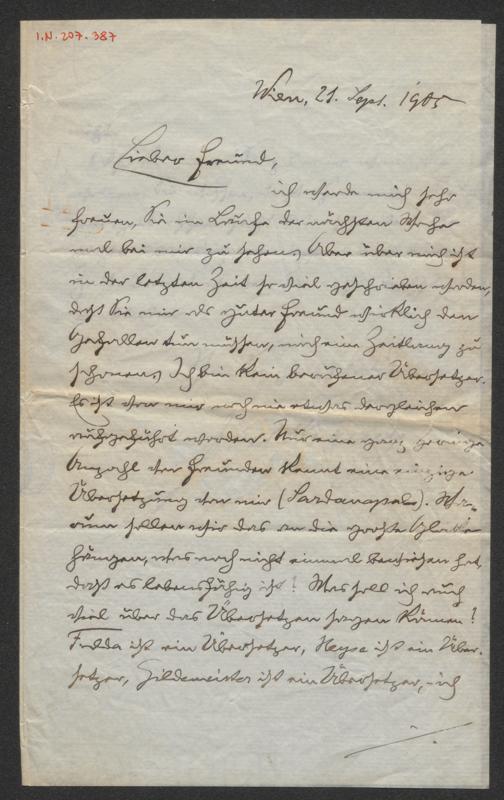 I.N. 207.387
Wien, 21. Sept. 1905
Lieber Freund,
ich werde mich sehr
freuen, Sie im Laufe der nächsten Woche
mal bei mir zu sehen. Aber über mich ist
in der letzten Zeit so viel geschrieben worden,
daß Sie mir als guter Freund wirklich den
Gefallen tun müssen, mich eine Zeitlang zu
schonen. Ich bin kein berufener Übersetzer.
Es ist von mir noch nie etwas dergleichen
aufgeführt worden. Nur eine ganz geringe
Anzahl von Freunden kennt eine einzige
Übersetzung von mir (Sardanapal). Wa-
rum sollen wir das an die große Glocke
hängen, was noch nicht einmal bewiesen hat,
daß es lebensfähig ist! Was soll ich auch
viel über das Übersetzen sagen können!
Fulda ist ein Übersetzer, Heyse ist ein Über-
setzer, Gildemeister ist ein Übersetzer, – ich